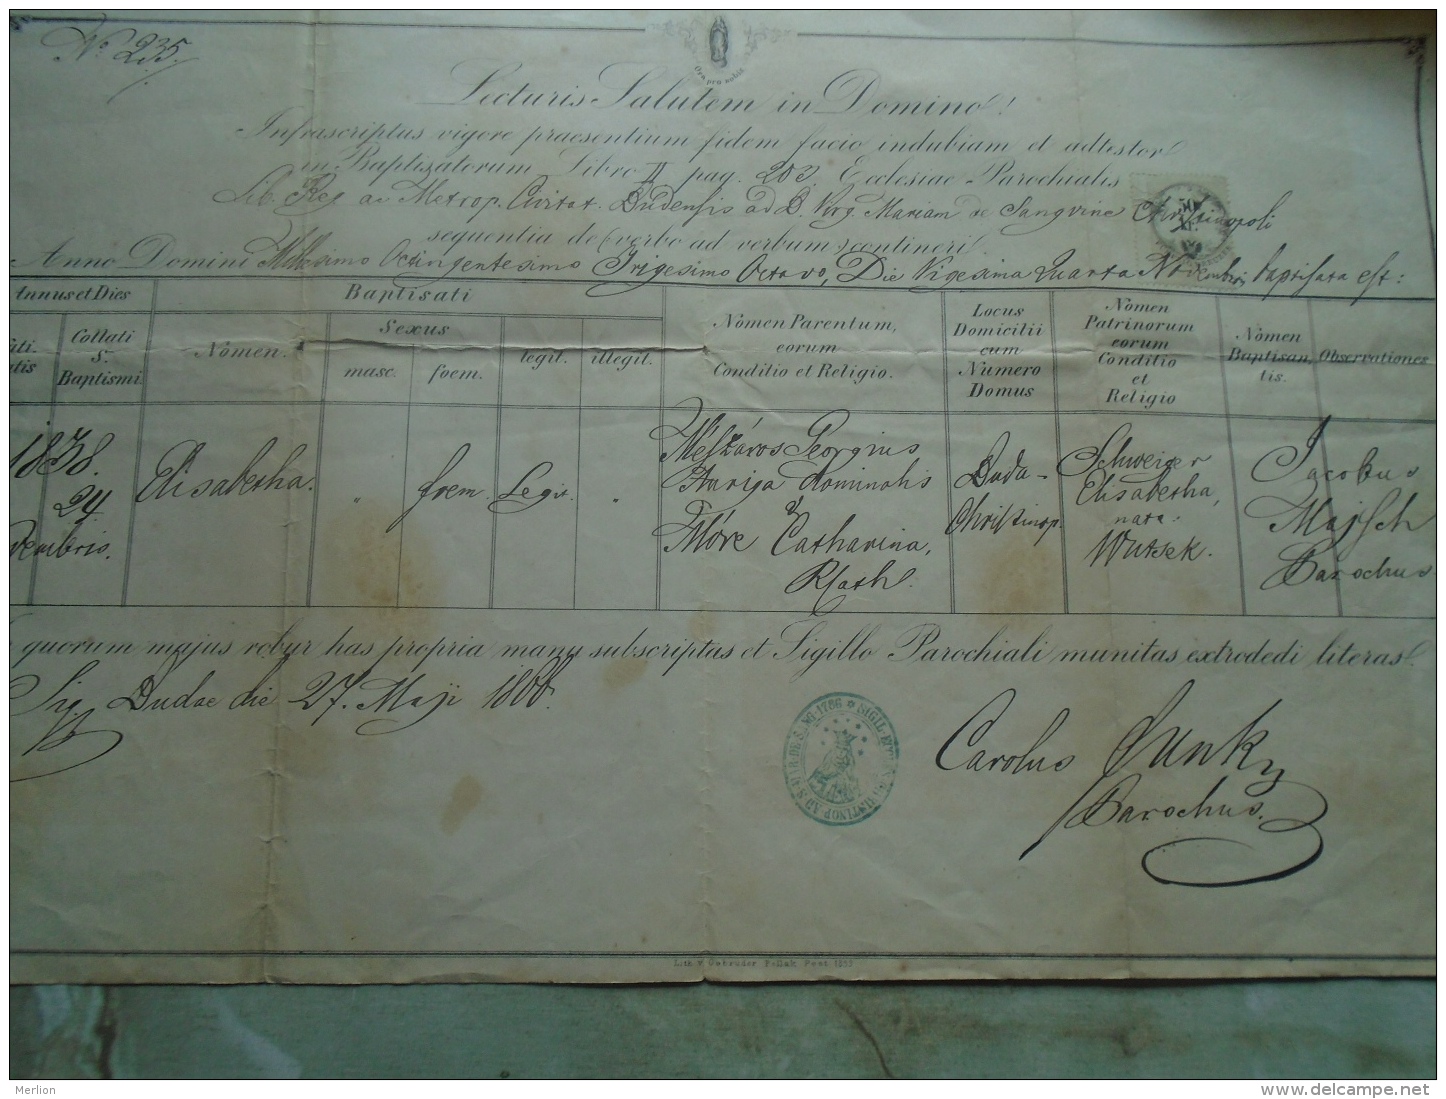 No 235.
Ora pro nobis
Lecturis Salutem in Domino!
Infrascriptus vigore praesentium fidem facio indubiam et adtestor
in Baptizatorum Libro II pag. 203. Ecclesiae Parochialis
Lib. Reg ac Metrop. Civitat. Budensis ad B. Virg. Mariam de Sangvine Christinopoli
sequentia de (verbo ad verbum) contineri
Anno Domini Millesimo Octingentesimo Trigesimo Octavo, Die Vigesima Quarta Novembris, baptisata est:
Annus et Dies
Collati
S.
Baptismi
Baptisati
Nomen.
Sexus
masc.
foem.
legit.
illegit.
Nomen Parentum,
eorum
Conditio et Religio.
Locus
Domicilii
cum
Numero
Domus
Nomen
Patrinorum
eorum
Conditio
et
Religio
Nomen
Baptisan-
tis.
Observationes
1838.
24
vembris.
Elisabetha.
"
foem.
Legit.
"
Mészáros Georgius
Auriga dominalis
&
Móre Catharina,
Rkath.
Buda-
Christinop.
Schweizer
Elisabetha,
nata
Wutsek.
Jacobus
Majsch
Parochus
quorum majus robur has propria manu subscriptas et Sigillo Parochiali munitas extradedi literas.
Sig. Budae die 27. Maji 18
Carolus
Parochus.
Lith. v. Gebrüder Pollak Pest.
Merlion
www.delcampe.net